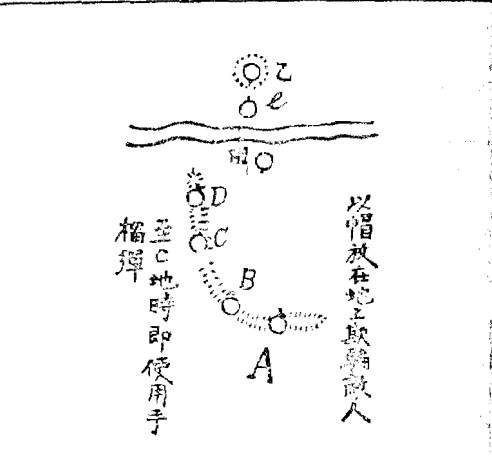 乙
e
D
C
B
A
以帽放在地上欺騙敵人
至C地時即使用手
榴彈